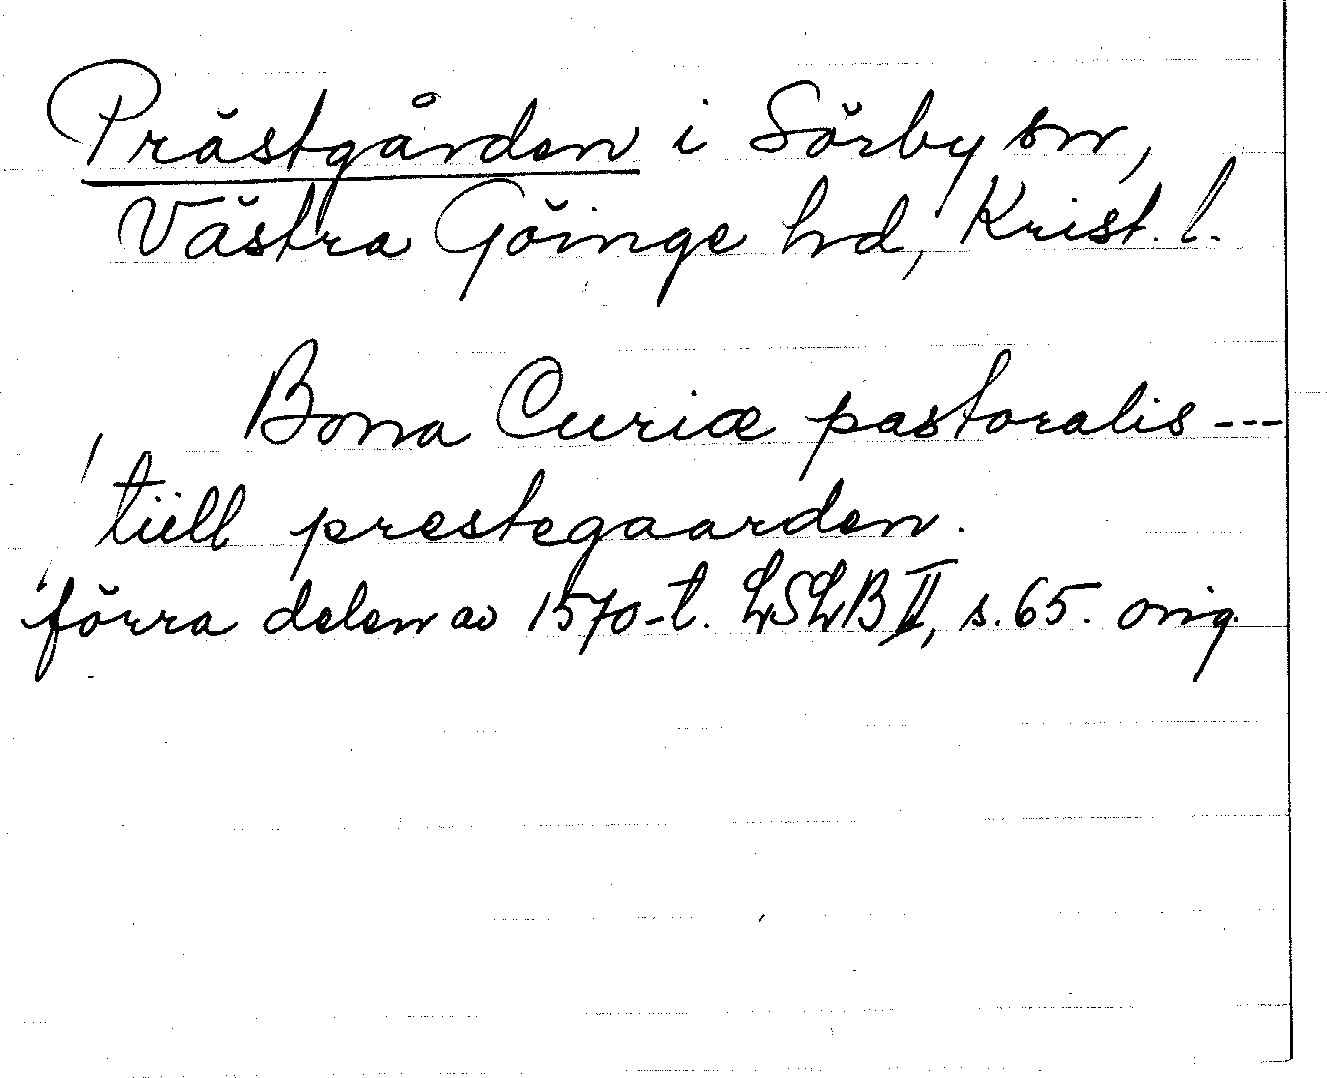 Prästgården i Sörby sn,
Västra Göinge hd, Krist. l.
Bona Curiæ pastoralis ---
tiill prestegaarden.
förra delen av 1570-t. LSLB II, s. 65. orig.